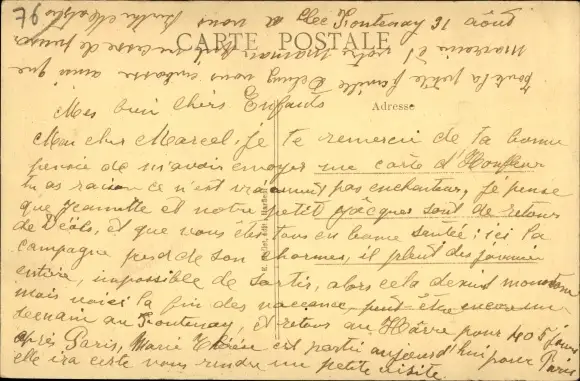 76
Fontenay 31 Août
CARTE POSTALE
Toute la petite famille vous embrasse ainsi que
Adresse
Mes bien Chers Enfants
Mon cher Marcel, je te remercie de ta bonne
pensée de m'avoir envoyer une carte d'Honfleur
tu as raison ce n'est vraiment pas enchanteur, je pense
que Jeannette et notre petit Jacques sont de retour
de Déols, et que vous êtes tous en bonne santée; ici la
campagne perd de son charmes, il pleut des journée
entière, impossible de sortir, alors cela devient monotone
mais voici la fin des vaccance, peut être encore une
semaine au Fontenay, et retour au Hâvre pour 4 0 5 jours
après Paris, Marie Thérèse est parti aujourd'hui pour Paris
elle ira certe vous rendre un petite visite.